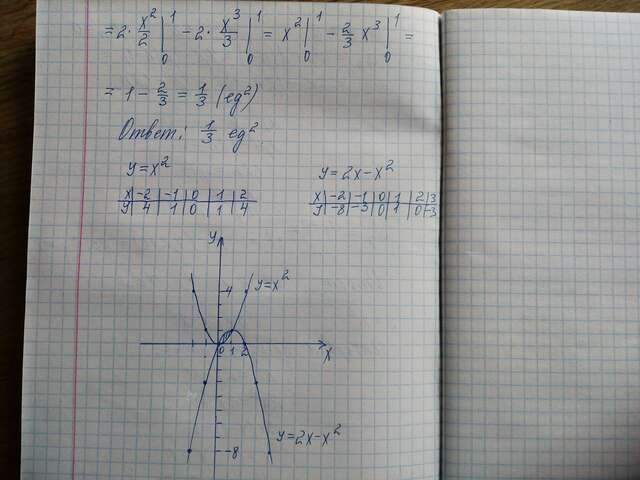 = 2· x²/2 |₀¹ − 2· x³/3 |₀¹ = x² |₀¹ − 2/3 x³ |₀¹ =
= 1 − 2/3 = 1/3 (ед²)
Ответ: 1/3 ед².
y=x²
y=2x−x²
x | −2 | −1 | 0 | 1 | 2
y | 4 | 1 | 0 | 1 | 4
x | −2 | −1 | 0 | 1 | 2 | 3
y | −8 | −3 | 0 | 1 | 0 | −3
y
4
y=x²
0 1 2
x
y=2x−x²
−8